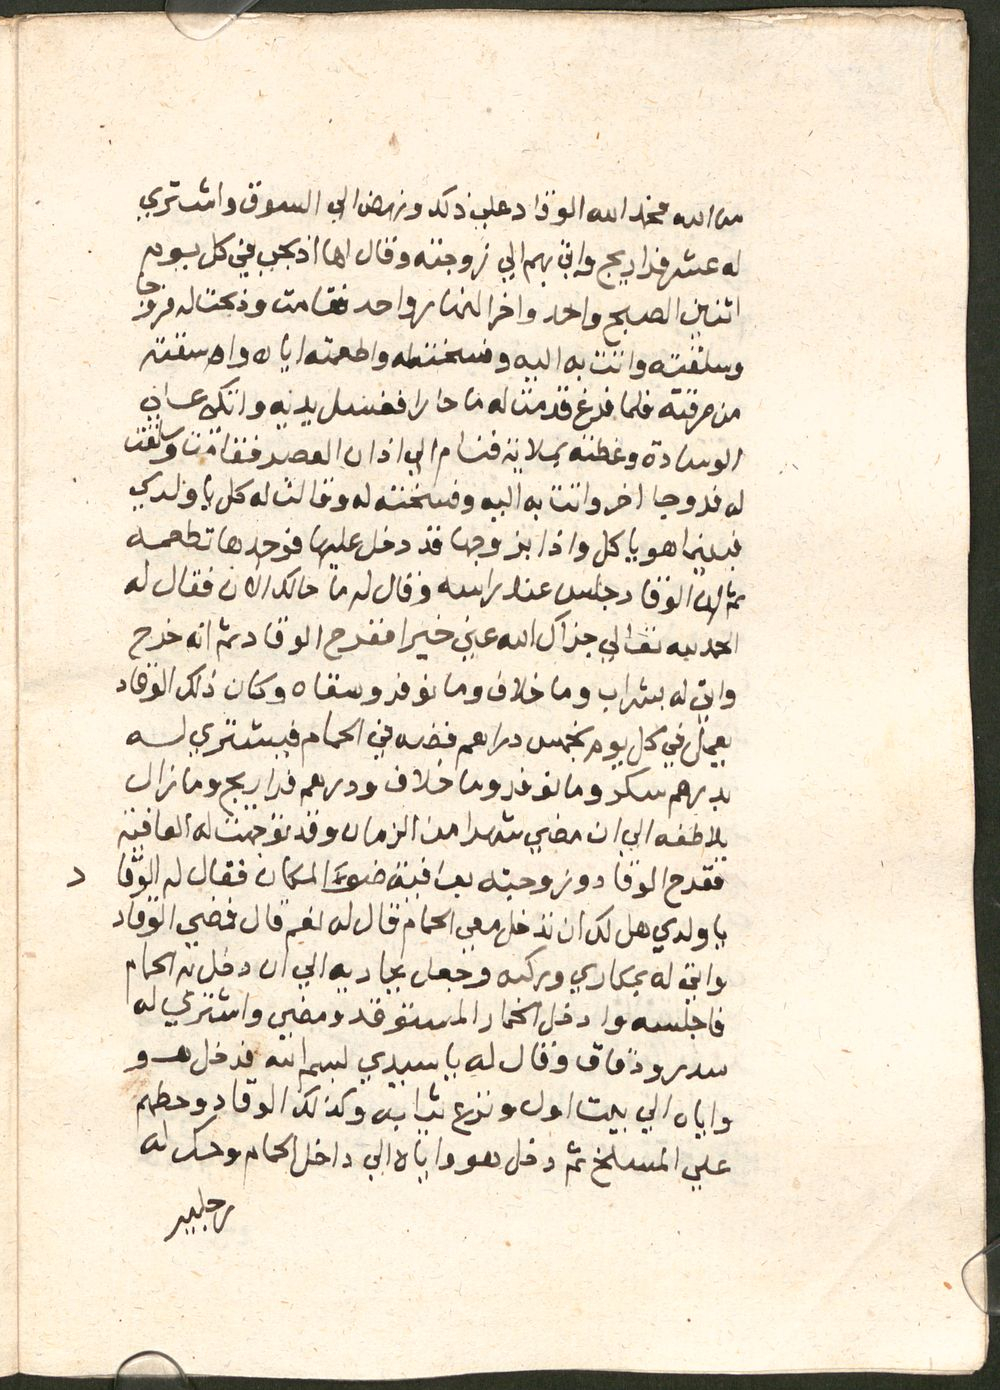 من الله فحمد الله الوقاد علي ذلك ونهض الي السوق واشتري
له عشر فراريج واتي بهم الي زوجته وقال لها اذبحي في كل يوم
اثنين الصبح واحد واخر النهار واحد فقامت وذبحت له فروجا
وسلقته واتت به اليه وفسختطه واطعمته اياه واسقته
من مرقته فلما فرغ قدمت له ما حارا فغسل يديه واتكي علي
الوسادة وغطته بملاية فنام الي اذان العصر فقامت وسلقت
له فروجا اخر واتت به اليه وفسخته له وقالت له كل يا ولدي
فبينما هو ياكل واذا بزوجها قد دخل عليها فوجدها تطعمه
ثم ان الوقاد جلس عند راسه وقال له ما حالك الان فقال له
الحمد لله تعالي جزاك الله عني خيرا ففرح الوقاد ثم انه خرج
واتي له بشراب وما خلاف وما نوفر وسقاه وكان ذلك الوقاد
يعمل في كل يوم بخمس دراهم فضه في الحمام فيشتري له
بدرهم سكر وما نوفر وما خلاف ودرهم فراريج وما زال
يلاطفه الي ان مضي شهرا من الزمان وقد توجهت له العافية
ففرح الوقاد وزوجته بعافية ضوء المكان فقال له الوقا د
يا ولدي هل لك ان تدخل معي الحمام قال له نعم قال فمضي الوقاد
واتي له بمكاري وركبه وجعل يجاريه الي ان دخل به الحمام
فاجلسه وادخل الحمار المستوقد ومضي واشتري له
سدر ودقاق وقال له يا سيدي بسم الله فدخل هو
واياه الي بيت اول ونزع ثيابه وكذلك الوقاد وحطهم
علي المسلخ ثم دخل هو واياه الي داخل الحمام وحك له
رجليه